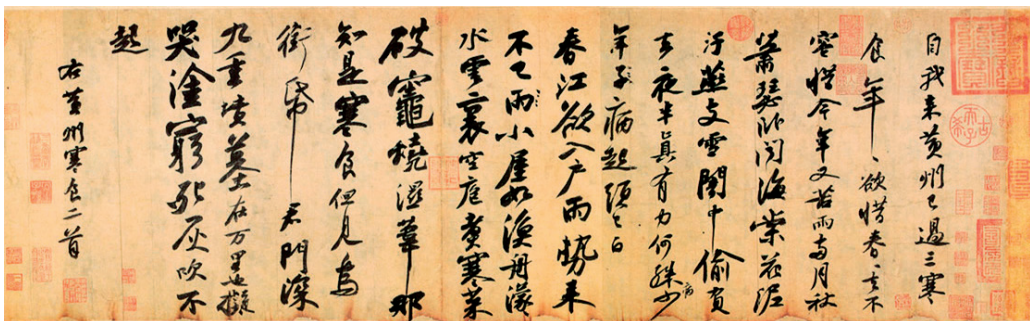 自我來黃州已過三寒
食年〻欲惜春〻去不
容惜今年又苦雨兩月秋
蕭瑟卧聞海棠花泥
汙燕支雪闇中偷負
去夜半真有力何殊少病
年子病起頭已白
春江欲入戶雨勢來
不已雨小屋如漁舟濛〻
水雲裏空庖煮寒菜
破竈燒濕葦那
知是寒食但見烏
銜帋君門深
九重墳墓在万里也擬
哭塗窮死灰吹不
起
右黃州寒食二首